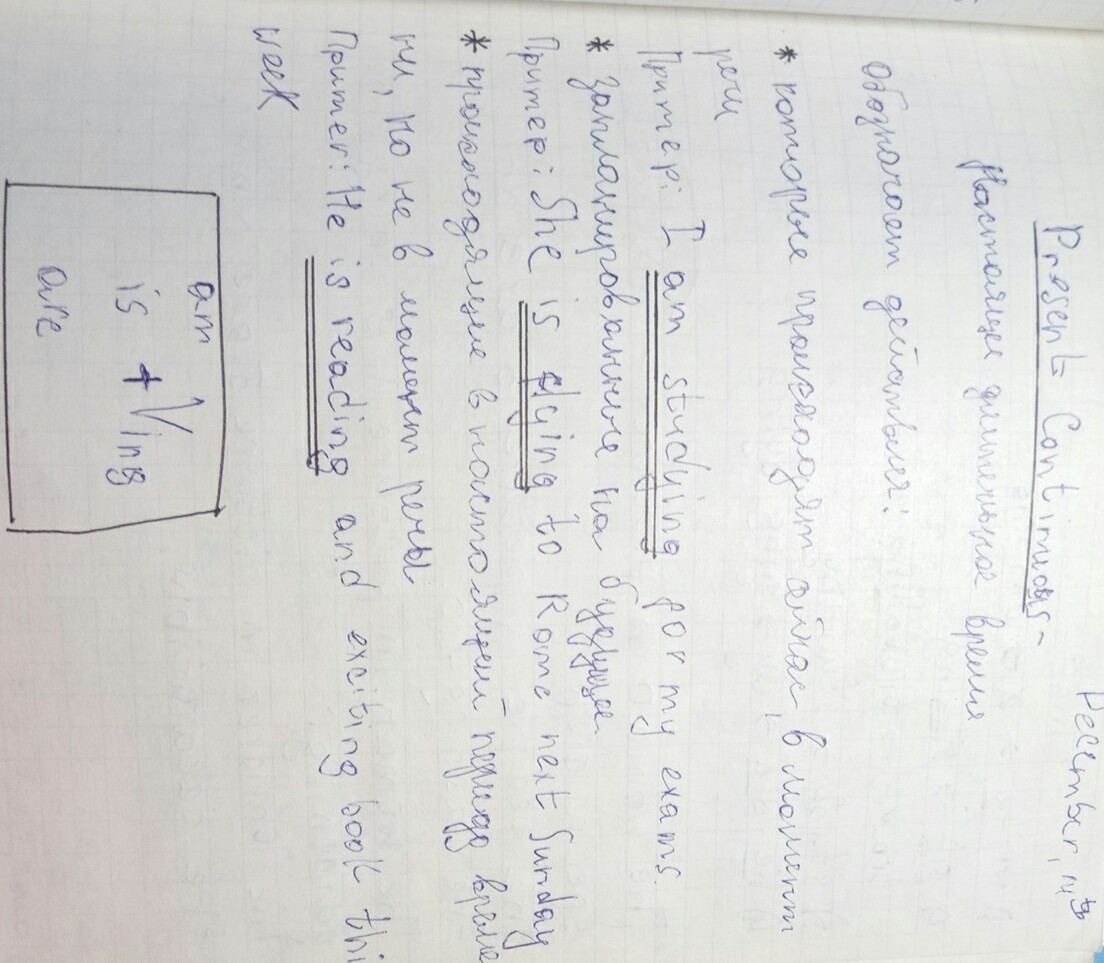 December, 14th
Present Continuous -
Настоящее длительное время
Обозначает действия:
* которые происходят сейчас, в момент
речи
Пример: I am studying for my exams.
* запланированные на будущее
Пример: She is flying to Rome next Sunday
* происходящие в настоящий период време
ни, но не в момент речи
Пример: He is reading and exciting book thi
week
am
is + V ing
are